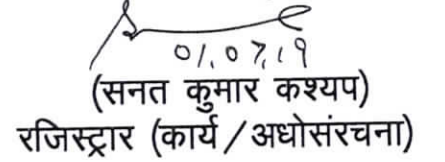 01.07.19
(सनत कुमार कश्यप)
रजिस्ट्रार (कार्य/अधोसंरचना)